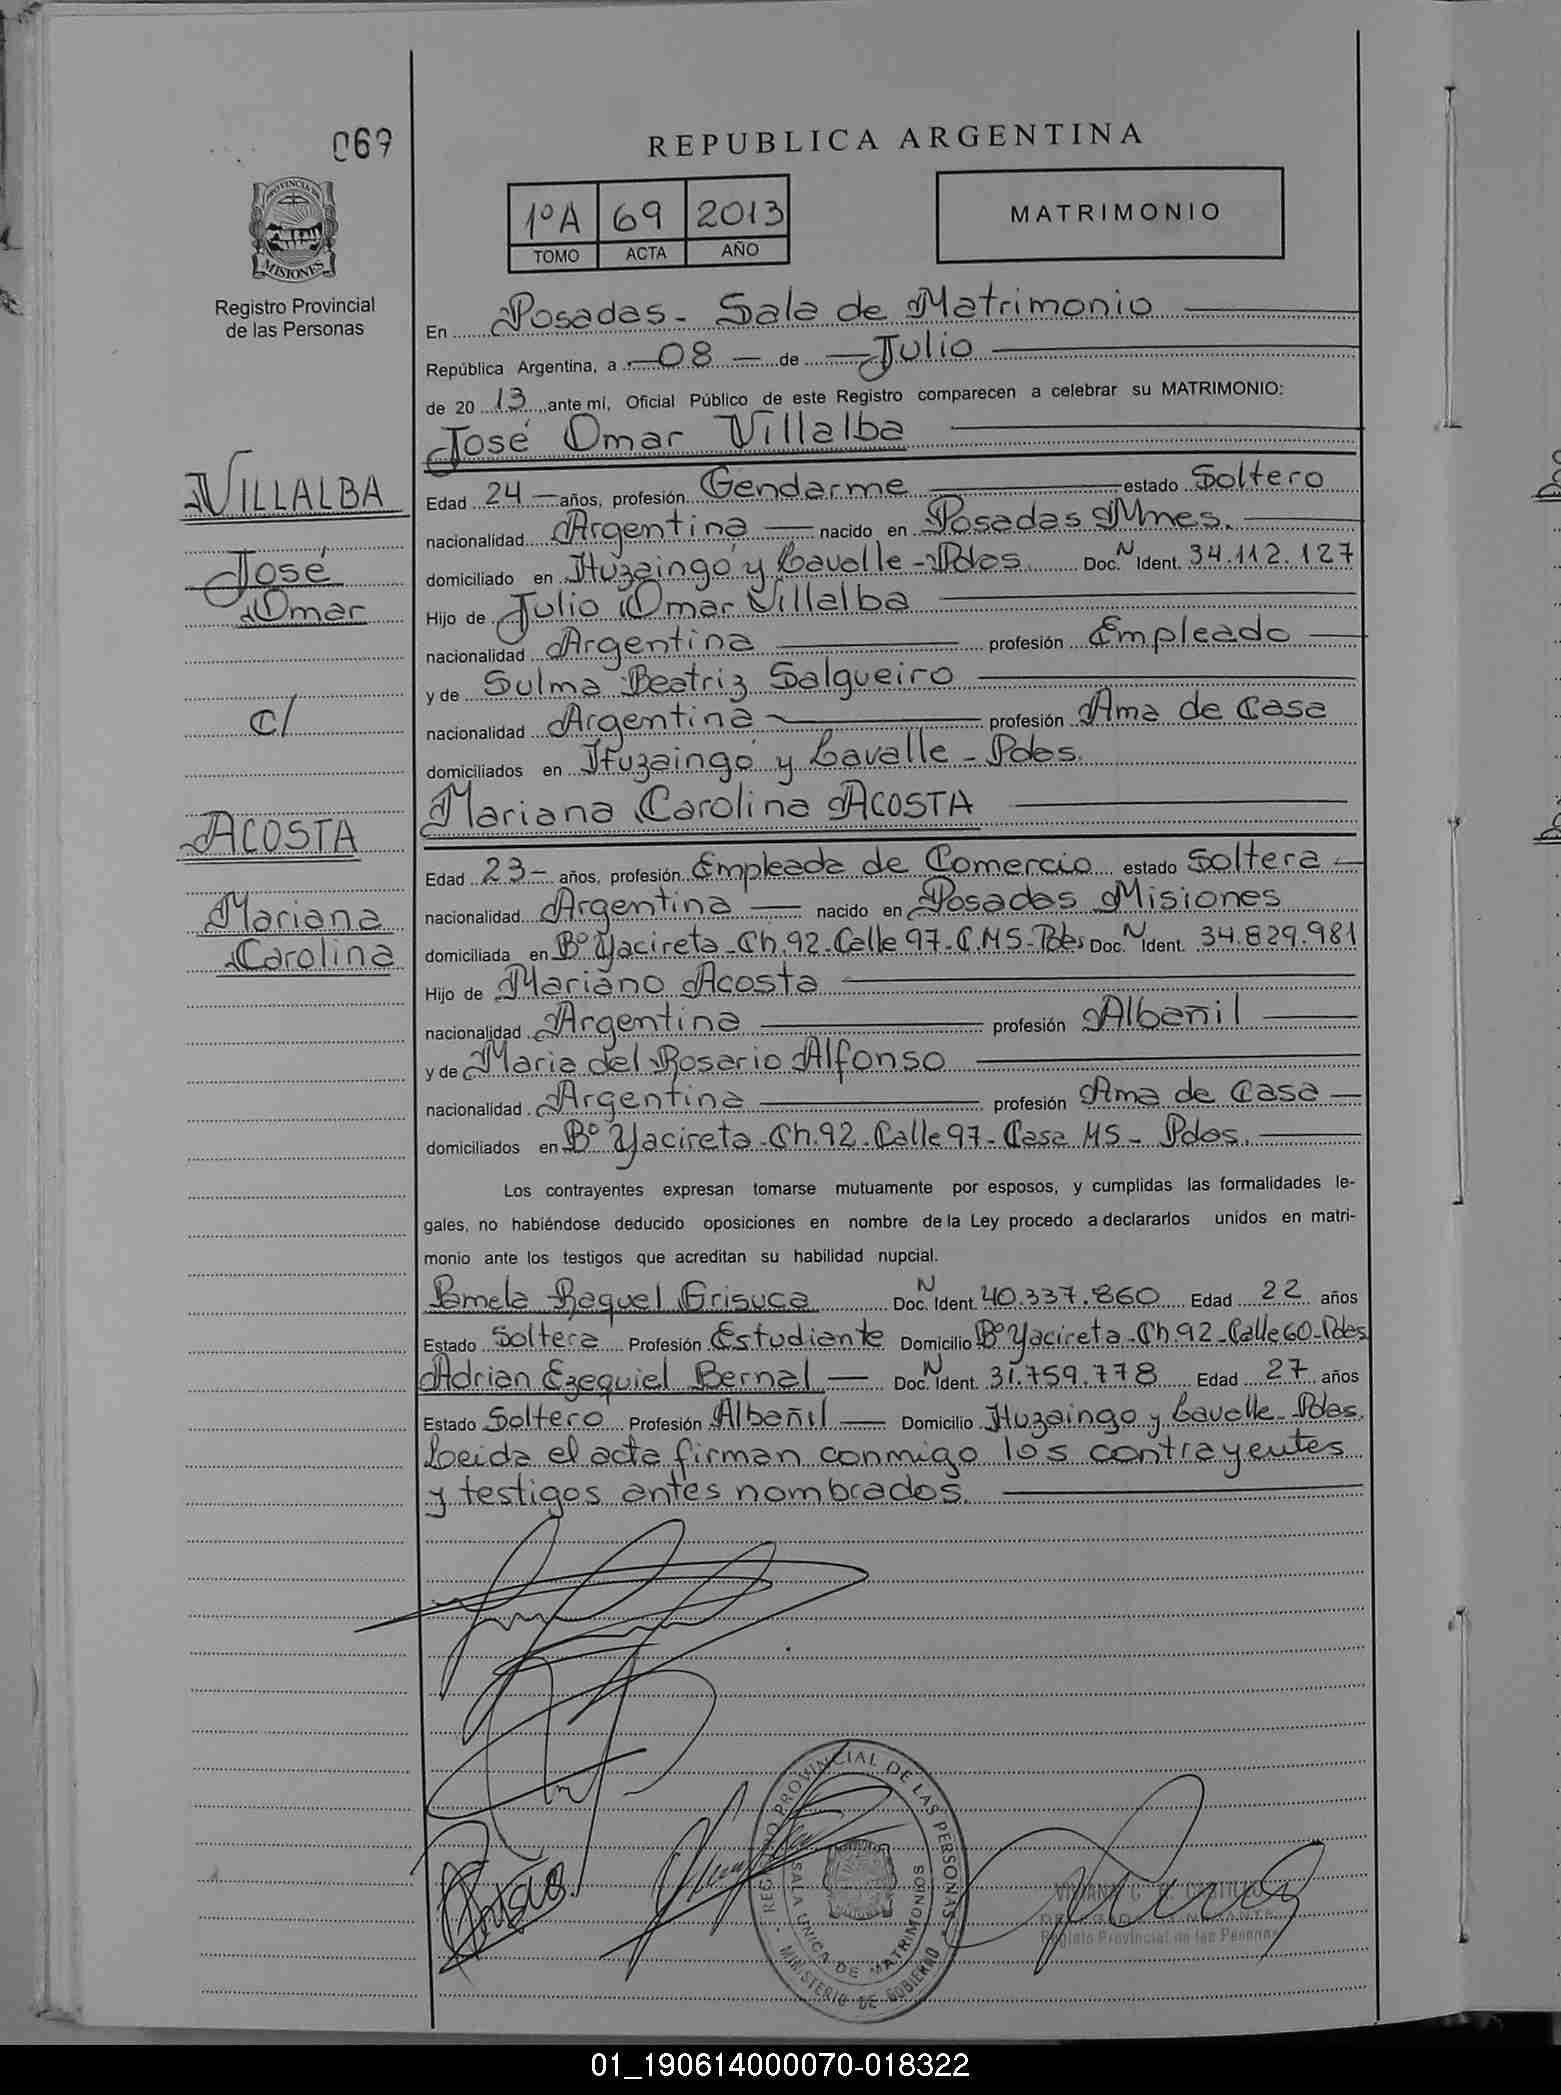 069
REPUBLICA ARGENTINA
1ºA 69 2013
TOMO ACTA AÑO
MATRIMONIO
PROVINCIA DE
MISIONES
Registro Provincial
de las Personas
En Posadas - Sala de Matrimonio
República Argentina, a 08 de Julio
de 20 13 ante mí, Oficial Público de este Registro comparecen a celebrar su MATRIMONIO:
José Omar Villalba
VILLALBA
José
Omar
c/
ACOSTA
Mariana
Carolina
Edad 24 años, profesión Gendarme estado Soltero
nacionalidad Argentina nacido en Posadas Mnes.
domiciliado en Ituzaingó y Lavalle - Pdas Doc. N Ident. 34.112.127
Hijo de Julio Omar Villalba
nacionalidad Argentina profesión Empleado
y de Sulma Beatriz Salgueiro
nacionalidad Argentina profesión Ama de Casa
domiciliados en Ituzaingó y Lavalle - Pdas.
Mariana Carolina ACOSTA
Edad 23 años, profesión Empleada de Comercio estado Soltera
nacionalidad Argentina nacido en Posadas Misiones
domiciliada en Bº Yacireta - Ch. 92 - Calle 97 - C. MS - Pdas Doc. N Ident. 34.829.981
Hijo de Mariano Acosta
nacionalidad Argentina profesión Albañil
y de Maria del Rosario Alfonso
nacionalidad Argentina profesión Ama de Casa
domiciliados en Bº Yacireta - Ch. 92 - Calle 97 - Casa MS - Pdas.
Los contrayentes expresan tomarse mutuamente por esposos, y cumplidas las formalidades le-
gales, no habiéndose deducido oposiciones en nombre de la Ley procedo a declararlos unidos en matri-
monio ante los testigos que acreditan su habilidad nupcial.
Pamela Raquel Grisuca Doc. N Ident. 40.337.860 Edad 22 años
Estado Soltera Profesión Estudiante Domicilio Bº Yacireta - Ch. 92 - Calle 60 - Pdas
Adrian Ezequiel Bernal Doc. N Ident. 31.759.778 Edad 27 años
Estado Soltero Profesión Albañil Domicilio Ituzaingo y Lavalle - Pdas.
Leida el acta firman conmigo los contrayentes
y testigos antes nombrados.
REGISTRO PROVINCIAL DE LAS PERSONAS
SALA UNICA DE MATRIMONIOS
MINISTERIO DE GOBIERNO
Registo Provincial de las Personas
01_190614000070-018322